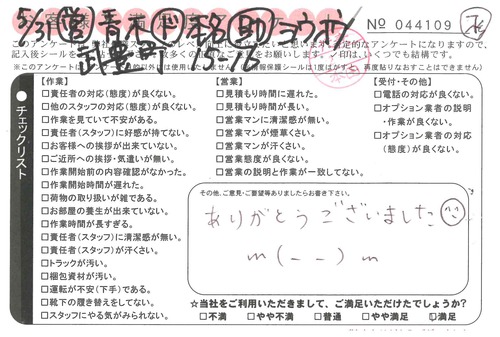 5/31 営 青木 助 ヨウオン
No 044109
このアンケートは
定的なアンケートになりますので、
記入後シールを
お願いします。〆印は、いくつでも結構です。
(※このアンケートは
以外では使用しません
情報保護シールは1度はがすと、再度貼りなおすことはできません)
チェックリスト
【作業】
□責任者の対応(態度)が良くない。
□他のスタッフの対応(態度)が良くない。
□作業を見ていて不安がある。
□責任者(スタッフ)に好感が持てない。
□お客様への挨拶が出来ていない。
□ご近所への挨拶・気遣いが無い。
□作業開始前の内容確認がなかった。
□作業開始時間が遅れた。
□荷物の取り扱いが雑である。
□お部屋の養生が出来ていない。
□作業時間が長すぎる。
□責任者(スタッフ)に清潔感が無い。
□責任者(スタッフ)が汗くさい。
□トラックが汚い。
□梱包資材が汚い。
□運転が不安(下手)である。
□靴下の履き替えをしてない。
□スタッフにやる気がみられない。
【営業】
□見積もり時間に遅れた。
□見積もり時間が長い。
□営業マンに清潔感が無い。
□営業マンが煙草くさい。
□営業マンが汗くさい。
□営業態度が良くない。
□営業の説明と作業が一致してない。
【受付・その他】
□電話の対応が良くない。
□オプション業者の説明
・作業が良くない。
□オプション業者の対応
(態度)が良くない。
その他、ご意見・ご要望等ありましたらお書き下さい。
ありがとうございました
m(--)m
☆当社をご利用いただきまして、ご満足いただけたでしょうか?
□不満 □やや不満 □普通 □やや満足 ☑満足